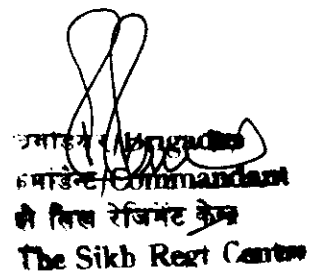 ब्रिगेडियर/Brigadier
कमांडेन्ट/Commandant
दी सिख रेजिमेंट केन्द्र
The Sikh Regt Centre